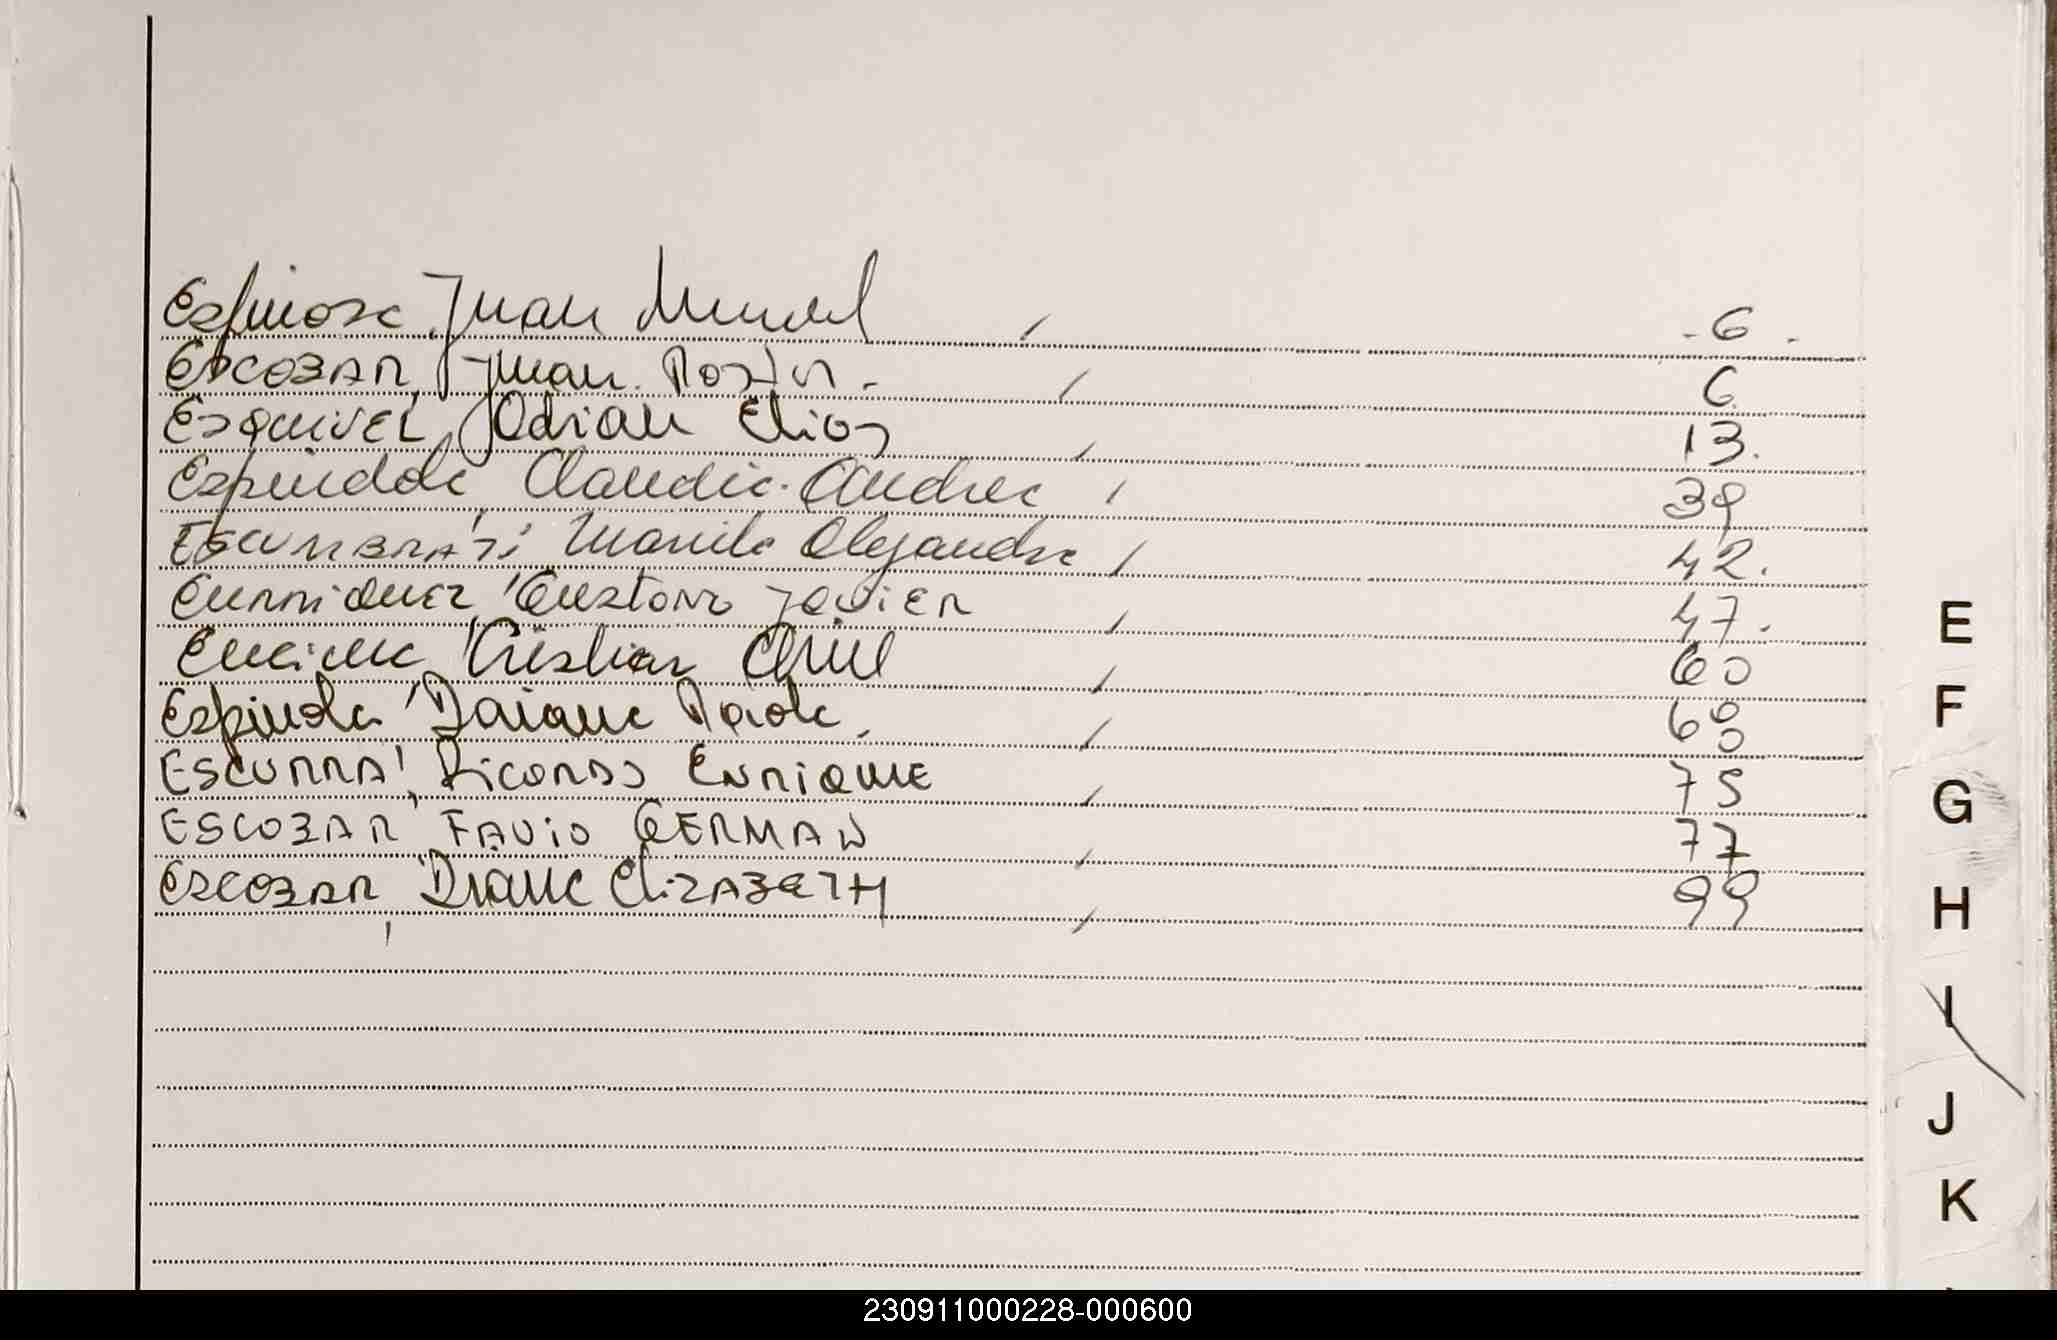 Espinosa, Juan Manuel , - 6 .
ESCOBAR, Juan , 6
ESQUIVEL, Adrian Elias , 13.
Espindola, Claudia Andrea , 39
Mariela Alejandra , 42.
ENRRIQUEZ, Gustavo JAVIER , 47.
Encina, Cristian Ariel , 60
Espindola, Daiana Paola , 60
ESCURRA, Ricardo ENRIQUE , 75
ESCOBAR, FAVIO GERMAN , 77
ESCOBAR, Diana ELIZABETH , 99
E
F
G
H
I
J
K
230911000228-000600